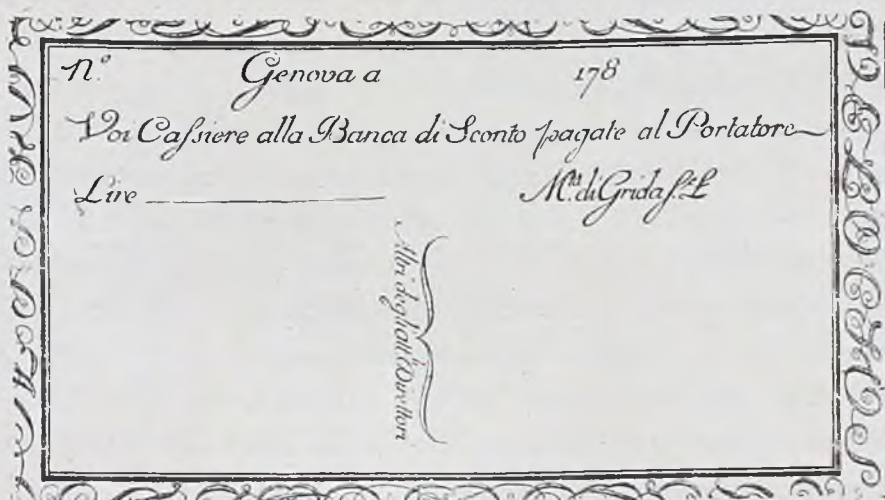 N.º Genova a 178
Voi Caſsiere alla Banca di Sconto pagate al Portatore
Lire M.ta di Grida
Altri degli Ill.i Direttori